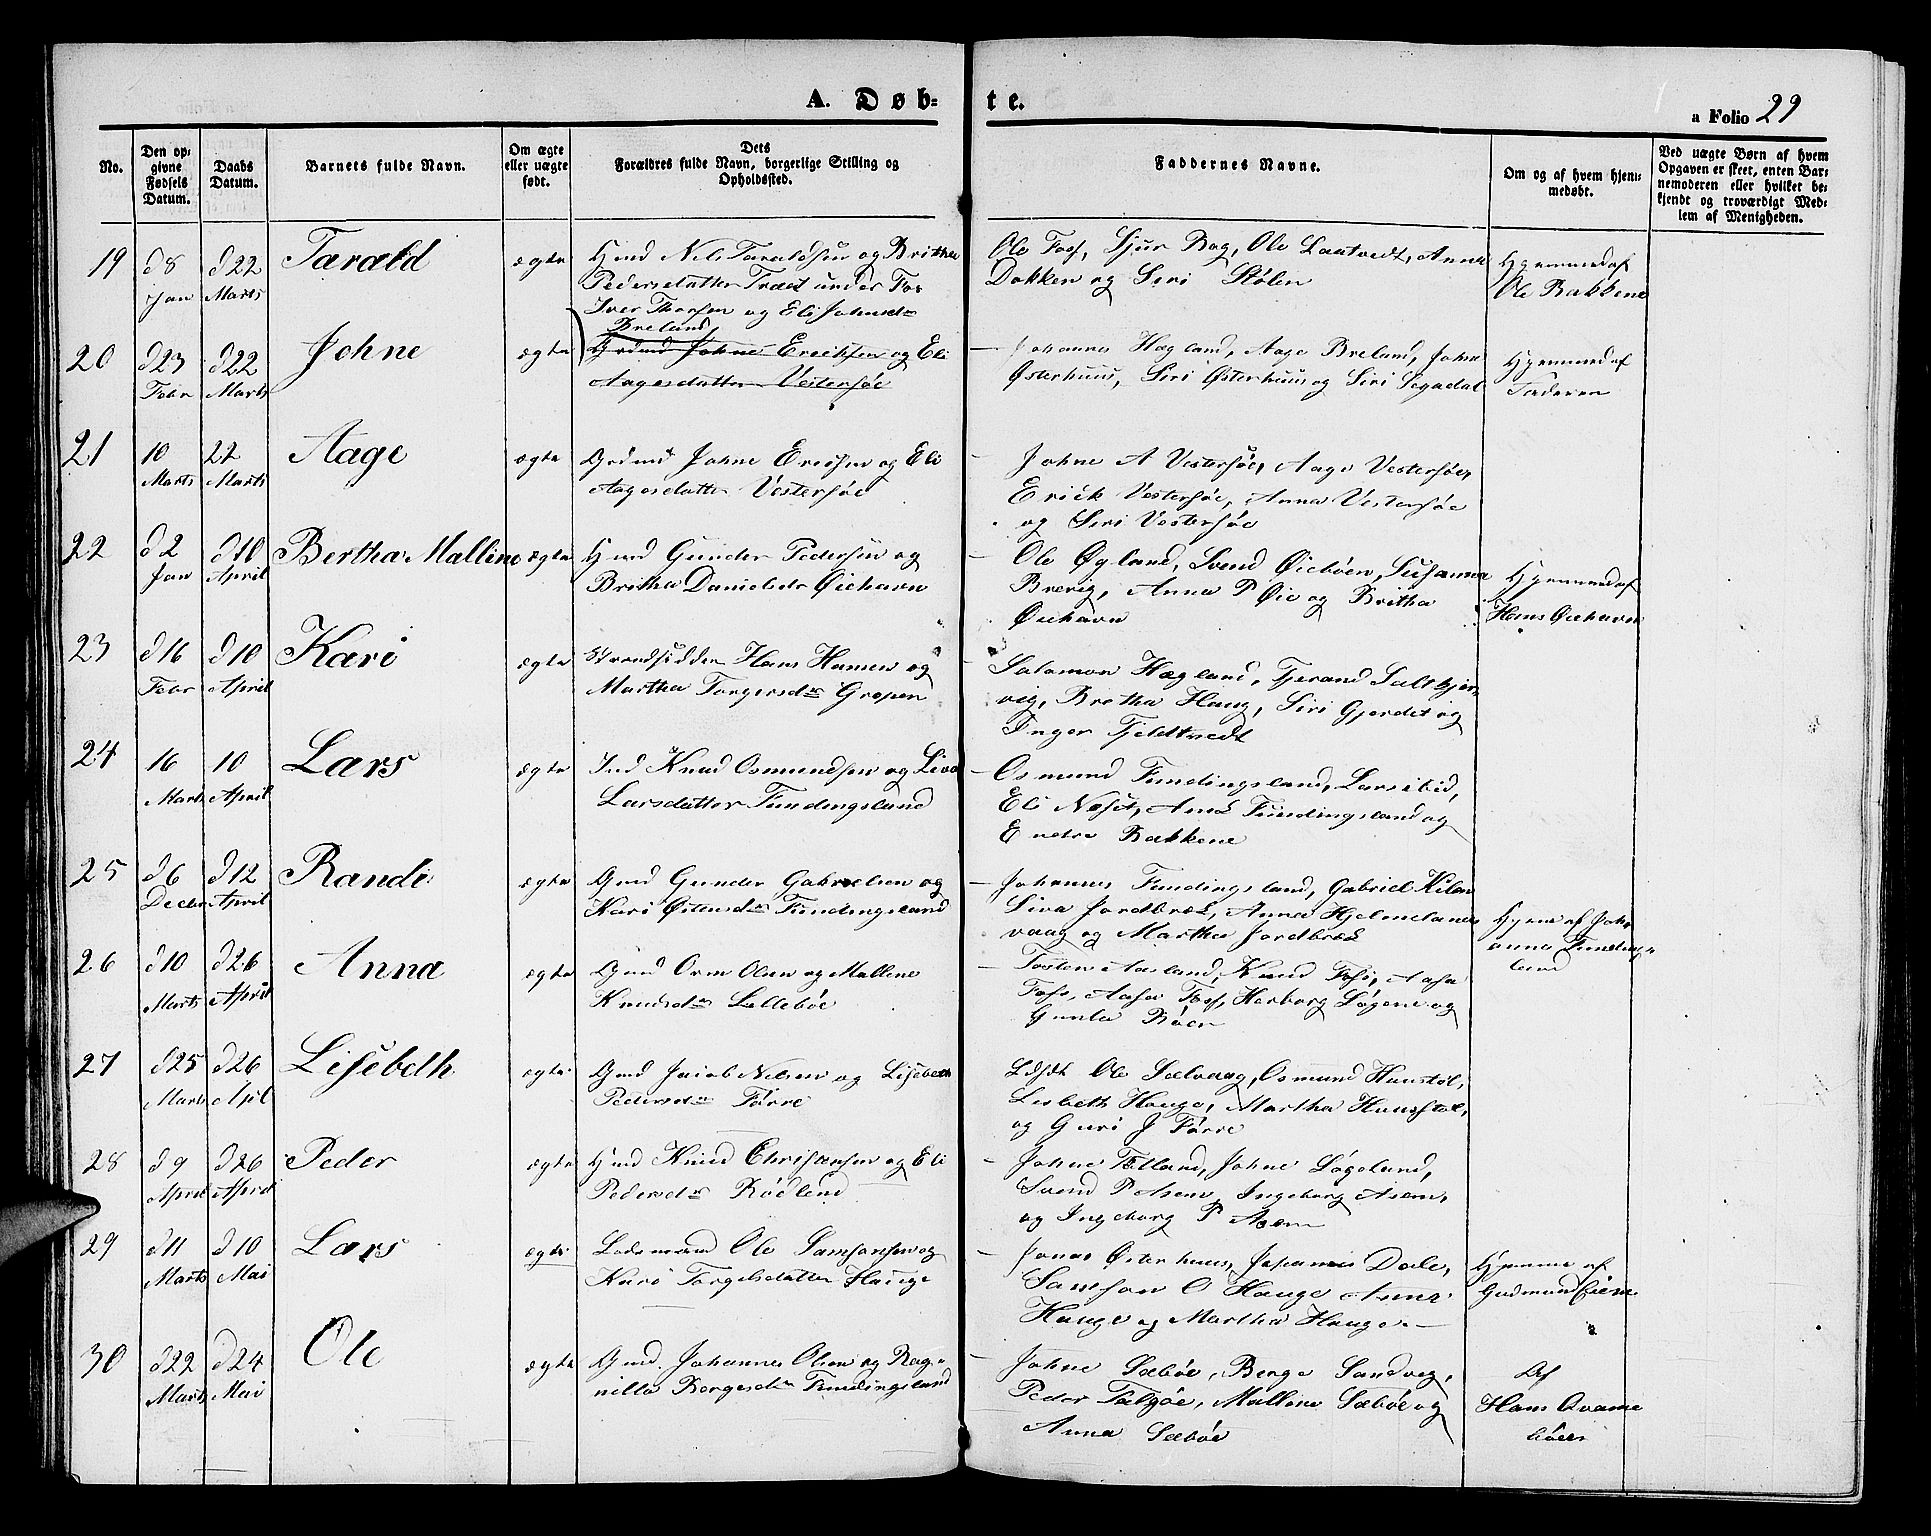 A. Døb-
te.
a Folio 29
No.
Den op-
givne
Fødsels
Datum.
Daabs
Datum.
Barnets fulde Navn.
Om ægte
eller uægte
født.
Dets
Forældres fulde Navn, borgerlige Stilling og
Opholdssted.
Faddernes Navne.
Om og af hvem hjem-
medøbt.
Ved uægte Børn af hvem
Opgaven er skeet, enten Bar-
nemoderen eller hvilket be-
kjendt og troværdigt Med-
lem af Menigheden.
19 d8 Jan d22 Marts Tarald ægte
Hmd Nils Taraldsen og Britha
Pedersdatter Træet under Fos
Ole Foss, Sjur Bag, Ole Lautvedt, Anna
Dokken og Siri Stølen
Hjemmed af
Ole Bakkene
20 d23 Febr d22 Marts Johne ægte
Iver Thorsen og Eli Johnsdr
Breland
Grdmd Johne Ericksen og Eli
Aagesdatter Vestersøe
Johannes Hægland, Aage Breland, John
Østerhuus, Siri Østerhuus og Siri Segadal
Hjemmed af
Faderen
21 10 Marts 22 Marts Aage ægte
Grdmd Johne Ericksen og Eli
Aagesdatter Vestersøe
Johne A Vestersøe, Aage Vestersøe,
Erick Vestersøe, Anna Vestersøe
og Siri Vestersøe
22 d2 Jan d10 April Bertha Malline ægte
Hmd Gunder Pedersen og
Britha Danielsdr Øiehavn
Ole Øgland, Svend Øieböen, Susanna
Brevig, Anna P Øie og Britha
Øiehavn
Hjemmed af
Hans Øiehavn
23 d16 Febr d10 April Kari ægte
Strandsidder Hans Hansen og
Martha Torgersdr Gropen
Salomon Hægland, Tjerand Saltkjer-
vig, Bretha Haug, Siri Gjerdet og
Inger Fjeldtvedt
24 16 Marts 10 April Lars ægte
Ind Knud Osmundsen og Liva
Larsdatter Fundingsland
Osmund Fundingsland, Lars ibid,
Eli Næset, Ane Fundingsland og
Endre Bakkene
25 d6 Decbr d12 April Randi ægte
Gmd Gunder Gabrielsen og
Kari Østensdr Fundingsland
Johannes Fundingsland, Gabriel Kilen
Siva Jordbræk, Anna Hjelmelands
vaag og Martha Jordbræk
Hjeme af Joh-
anna Funding
land
26 d10 Marts d26 April Anna ægte
Gmd Orm Olsen og Mallene
Knudsdr Lillebøe
Tosten Aasland, Knud Foss, Aasa
Foss, Aasa Foss, Herborg Løgene og
Gunla Röen
27 d25 Marts d26 April Lisebeth ægte
Gmd Jacob Nilsen og Lisebeth
Pedersdr Førre
Ole Sælvaag, Osmund Hunstøl,
Lisbeth Hauge, Martha Hunstøl,
og Guri J Førre
28 d9 April d26 April Peder ægte
Hmd Knud Christensen og Eli
Pedersdr Rödland
Johne Tætland, Johne Lögeland,
Svend P Asen, Ingeborg Asem,
og Ingeborg P Asem
29 d11 Marts d10 Mai Lars ægte
Lodsmand Ole Samsonsen og
Kari Torgelsdatter Hauge
Jonas Østerhuus, Johannis Dale,
Samson O Hauge Anna
Hauge og Martha Hauge
Hjemme af
Gudmund Eiene
30 d22 Marts d24 Mai Ole ægte
Gmd. Johannes Olsen og Rag-
nilla Borgesdr Fundingsland
Johne Sæbøe, Berge Sandvig,
Peder Talgøe, Mallene Sæbøe og
Anna Sæbøe
Af
Hans Qvame
böen